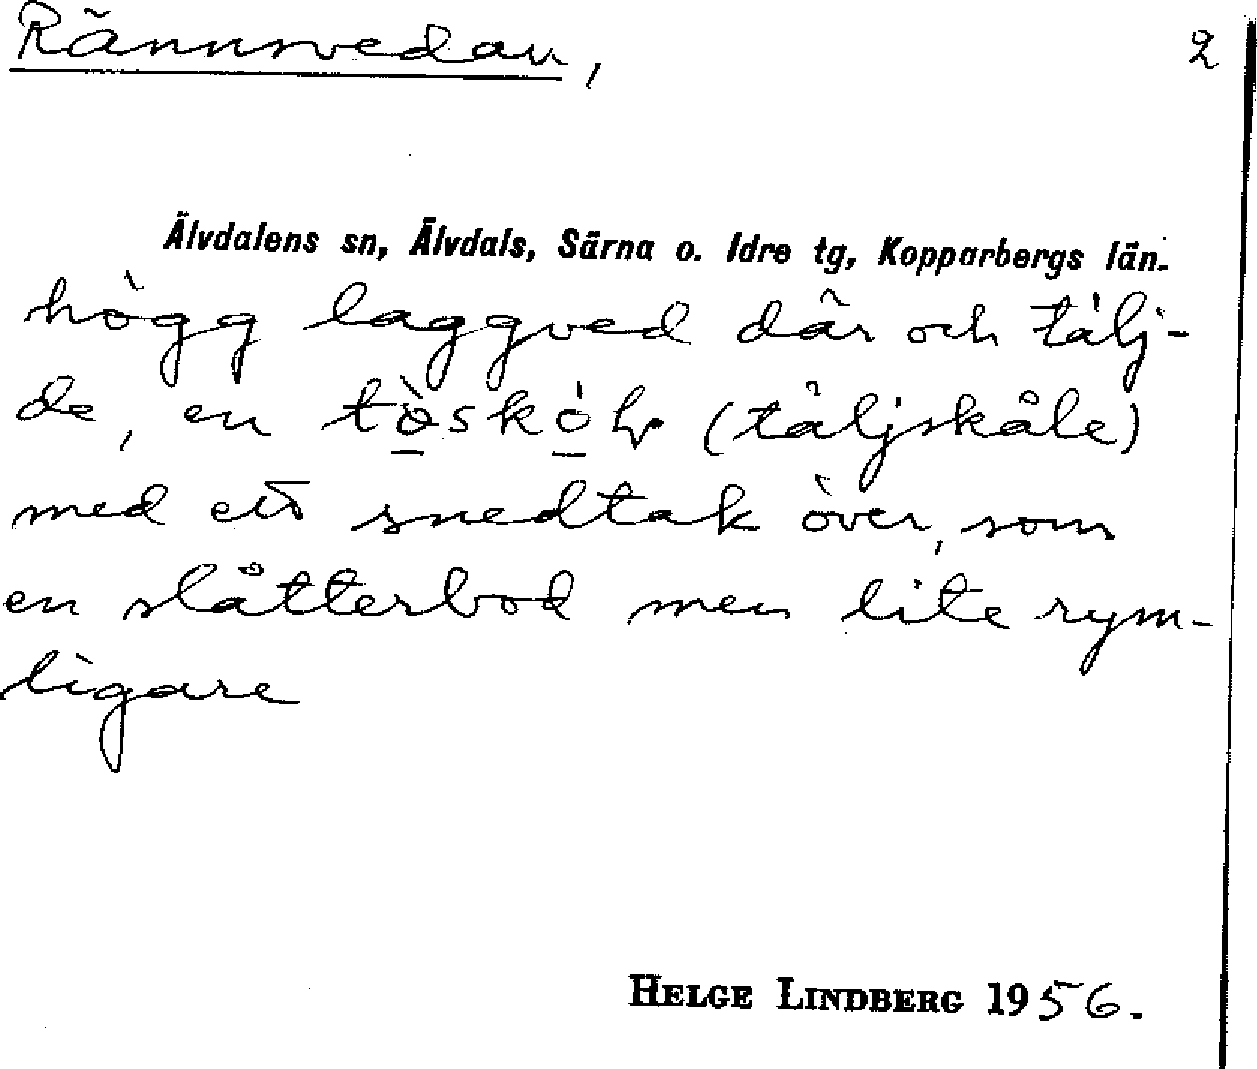 Rännsvedan, 2
Älvdalens sn, Älvdals, Särna o. Idre tg, Kopparbergs län.
högg laggved där och tälj-
de, en (täljskåle)
med ett snedtak över, som
en slåtterbod men lite rym-
ligare
HELGE LINDBERG 1956.